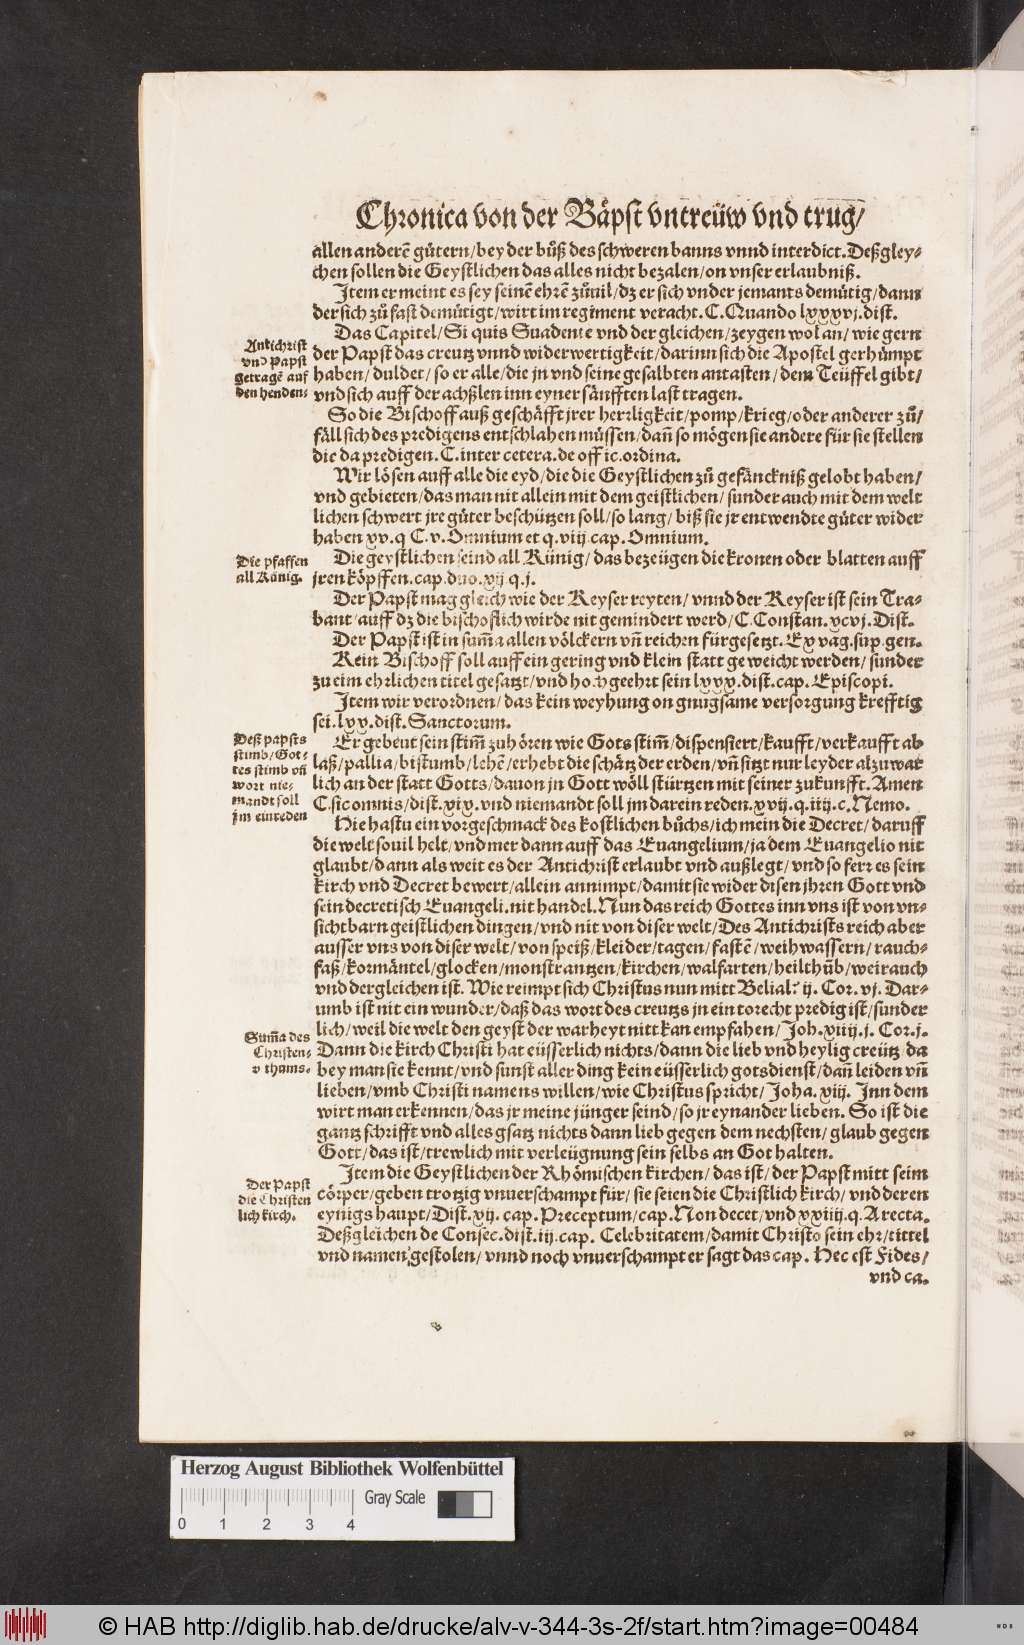 Chronica von der Bäpst vntreüw vnd trug/
allen anderẽ gütern/bey der bůß des schweren banns vnnd interdict. Deßgley-
chen sollen die Geystlichen das alles nicht bezalen/on vnser erlaubniß.
Item er meint es sey seinẽ ehrẽ zůuil/dz er sich vnder jemants demütig/dann
der sich zů fast demütigt/wirt im regiment veracht. C. Quando lxxxvj. dist.
Das Capitel/Si quis Suadente vnd der gleichen/zeygen wol an/wie gern
Antichrist
vnd Papst
getragẽ auf
den henden.
der Papst das creutz vnnd widerwertigkeit/darinn sich die Apostel gerhůmpt
haben/duldet/so er alle/die jn vnd seine gesalbten antasten/dem Teüffel gibt/
vnd sich auff der achßlen inn eyner sänfften last tragen.
So die Bischoff auß geschäfft jrer herrligkeit/pomp/krieg/oder anderer zů/
fäll sich des predigens entschlahen müssen/dañ so mögen sie andere für sie stellen
die da predigen. C. inter cetera. de offic. ordina.
Wir lösen auff alle die eyd/die die Geystlichen zů gefänckniß gelobt haben/
vnd gebieten/das man nit allein mit dem geistlichen/sunder auch mit dem welt
lichen schwert jre güter beschützen soll/so lang/biß sie jr entwendte güter wider
haben xv. q C. v. Omnium et q. viij cap. Omnium.
Die pfaffen
all Künig.
Die geystlichen seind all Künig/das bezeügen die kronen oder blatten auff
jren köpffen. cap. duo. xij q. j.
Der Papst mag gleich wie der Keyser reyten/vnnd der Keyser ist sein Tra-
bant/auff dz die bischoflich wirde nit gemindert werd/C. Constan. xcvj. Dist.
Der Papst ist in suma allen völckern vñ reichen fürgesetzt. Ex vag. sup. gen.
Kein Bischoff soll auff ein gering vnd klein statt geweicht werden/sunder
zu eim ehrlichen titel gesatzt/vnd hochgeehrt sein lxxx. dist. cap. Episcopi.
Item wir verordnen/das kein weyhung on gnugsame versorgung krefftig
sei. lxx. dist. Sanctorum.
Deß papsts
stimb/Got-
tes stimb vñ
wort nie-
mandt soll
jm einreden
Er gebeut sein stim̃ zuhören wie Gots stim̃/dispensiert/kaufft/verkaufft ab
laß/pallia/bistumb/lehẽ/erhebt die schätz der erden/vñ sitzt nur leyder alzuwar
lich an der statt Gotts/dauon jn Gott wöll stürtzen mit seiner zukunfft. Amen
C. sic omnis/dist. xix. vnd niemandt soll jm darein reden. xvij. q. iiij. c. Nemo.
Hie hastu ein vorgeschmack des kostlichen bůchs/ich mein die Decret/daruff
die welt souil helt/vnd mer dann auff das Euangelium/ja dem Euangelio nit
glaubt/dann als weit es der Antichrist erlaubt vnd außlegt/vnd so ferr es sein
kirch vnd Decret bewert/allein annimpt/damit sie wider disen jhren Gott vnd
sein decretisch Euangeli. nit handel. Nun das reich Gottes inn vns ist von vn-
sichtbarn geistlichen dingen/vnd nit von diser welt/Des Antichrists reich aber
ausser vns von diser welt/von speiß/kleider/tagen/fastẽ/weihwassern/rauch-
faß/kormäntel/glocken/monstrantzen/kirchen/walfarten/heilthůb/weirauch
vnd dergleichen ist. Wie reimpt sich Christus nun mitt Belial? ij. Cor. vj. Dar-
umb ist nit ein wunder/daß das wort des creutzs jn ein torecht predig ist/sunder
Suma des
Christen-
thums.
lich/weil die welt den geyst der warheyt nitt kan empfahen/Joh. xiiij. j. Cor. j.
Dann die kirch Christi hat eüsserlich nichts/dann die lieb vnd heylig creütz/da
bey man sie kennt/vnd sunst aller ding kein eüsserlich gotsdienst/dañ leiden vñ
lieben/vmb Christi namens willen/wie Christus spricht/Joha. xiij. Inn dem
wirt man erkennen/das jr meine jünger seind/so jr eynander lieben. So ist die
gantz schrifft vnd alles gsatz nichts dann lieb gegen dem nechsten/glaub gegen
Gott/das ist/trewlich mit verleügnung sein selbs an Got halten.
Der Papst
die Christen
lich kirch.
Item die Geystlichen der Rhömischen kirchen/das ist/der Papst mitt seim
cörper/geben trotzig vnuerschampt für/sie seien die Christlich kirch/vnd deren
eynigs haupt/Dist. xij. cap. Preceptum/cap. Non decet/vnd xxiiij. q. A recta.
Deßgleichen de Consec. dist. iij. cap. Celebritatem/damit Christo sein ehr/tittel
vnd namen gestolen/vnnd noch vnuerschampt er sagt das cap. Hec est Fides/
vnd ca.
Herzog August Bibliothek Wolfenbüttel
Gray Scale
0 1 2 3 4
© HAB http://diglib.hab.de/drucke/alv-v-344-3s-2f/start.htm?image=00484